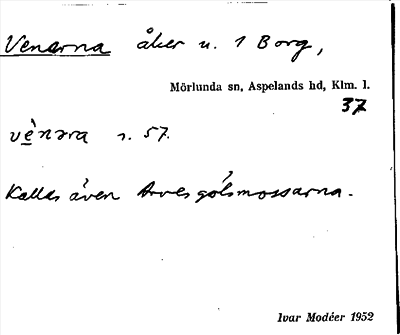 Venarna åker u. 1 Borg,
Mörlunda sn, Aspelands hd, Klm. l.
37
vè̱nəra s. 57.
Kallas även Arvesgölsmossarna.
Ivar Modéer 1952